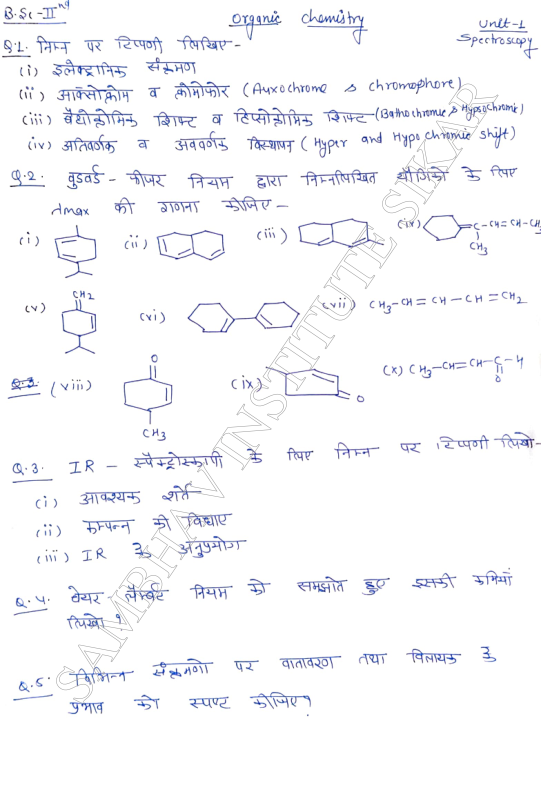 B.Sc-IInd
Organic chemistry
Unit-1
Spectroscopy
Q.1. निम्न पर टिप्पणी लिखिए -
(i) इलैक्ट्रानिक संक्रमण
(ii) आक्सोक्रोम व क्रोमोफोर (Auxochrome & chromophore)
(iii) बैथोक्रोमिक शिफ्ट व हिप्सोक्रोमिक शिफ्ट - (Bathochromic & Hypsochromic)
(iv) अतिवर्णक व अववर्णक विस्थापन (Hyper and Hypochromic shift)
Q.2. वुडवर्ड - फीजर नियम द्वारा निम्नलिखित यौगिको के लिए
λmax की गणना कीजिए -
(i) (ii) (iii) (iv) C-CH=CH-CH3
CH3
(v) CH2 (vi) (vii) CH3-CH=CH-CH=CH2
Q.3. (viii) O CH3 (ix) O (x) CH3-CH=CH-C-H
O
Q.3. IR - स्पैक्ट्रोस्कापी के लिए निम्न पर टिप्पणी लिखो-
(i) आवश्यक शर्ते
(ii) कम्पन्न की विधाए
(iii) IR के अनुप्रयोग
Q.4. बेयर - लैम्बर्ट नियम को समझाते हुए इसकी कमियां
लिखो ?
Q.5. विभिन्न संक्रमणो पर वातावरण तथा विलायक के
प्रभाव को स्पष्ट कीजिए ?
SAMBHAV INSTITUTE SIKAR